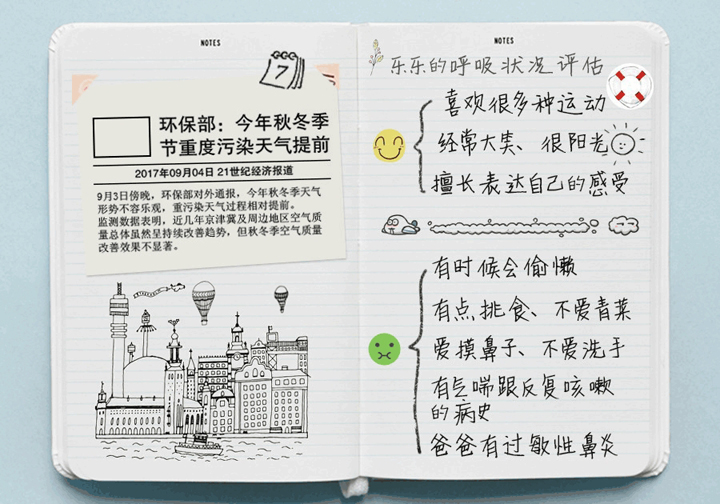 NOTES
7
环保部：今年秋冬季
节重度污染天气提前
2017年09月04日 21世纪经济报道
9月3日傍晚，环保部对外通报，今年秋冬季天气
形势不容乐观，重污染天气过程相对提前。
监测数据表明，近几年京津冀及周边地区空气质
量总体虽然呈持续改善趋势，但秋冬季空气质量
改善效果不显著。
NOTES
乐乐的呼吸状况评估
喜欢很多种运动
经常大笑、很阳光
擅长表达自己的感受
有时候会偷懒
有点挑食、不爱青菜
爱摸鼻子、不爱洗手
有点喘跟反复咳嗽
的病史
爸爸有过敏性鼻炎